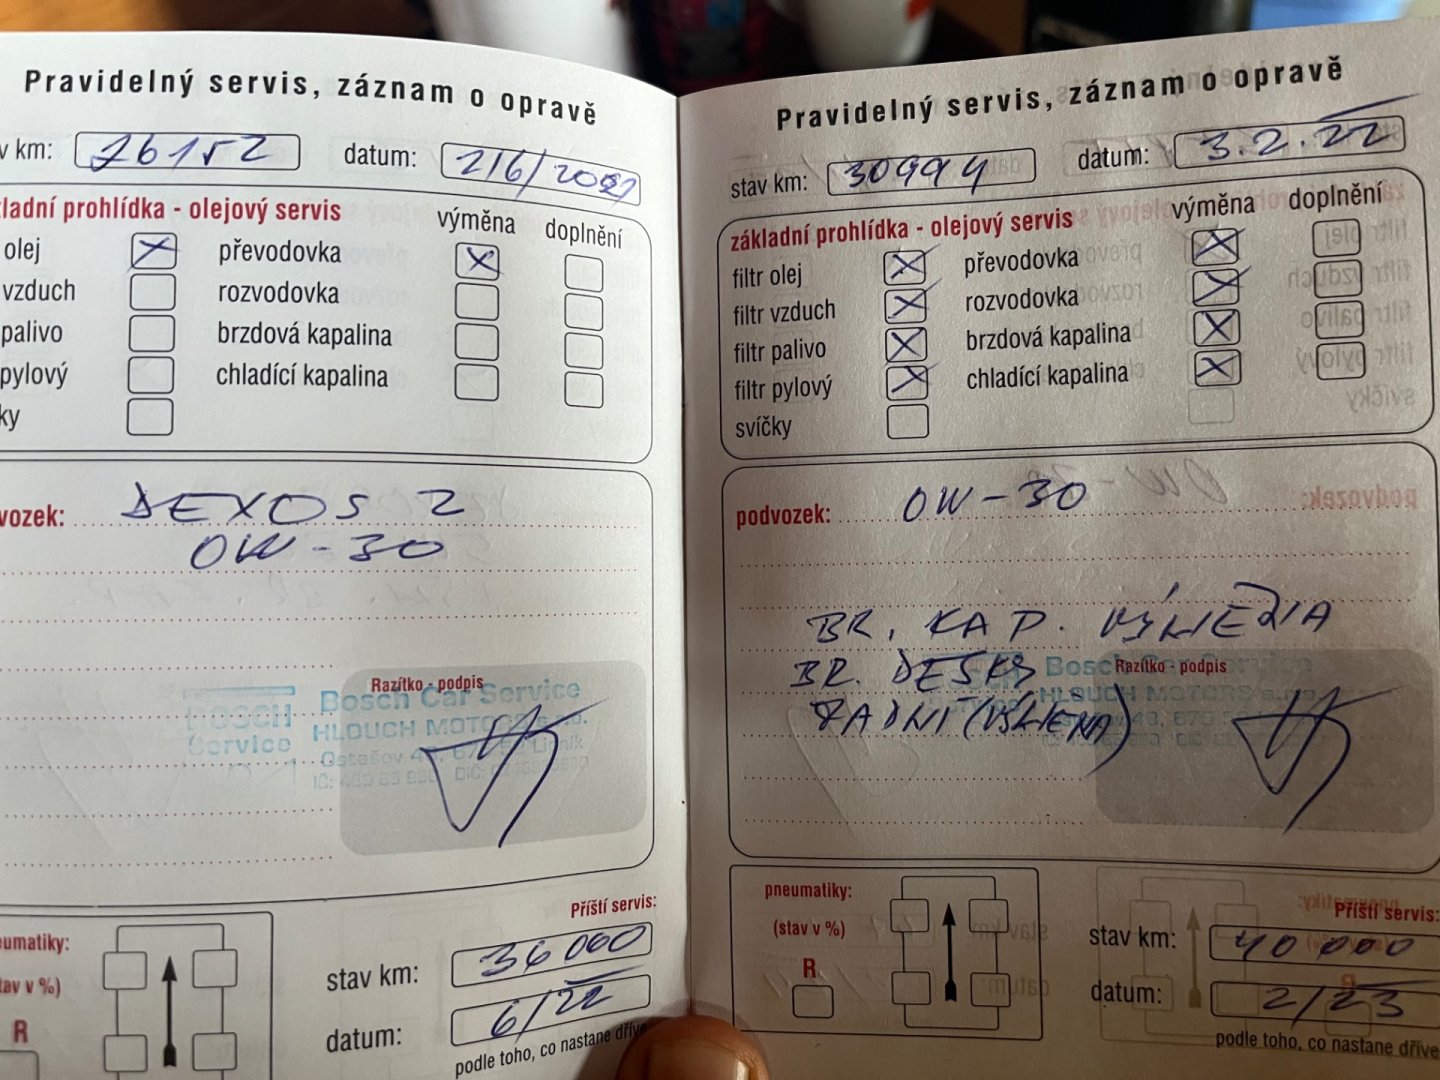 Pravidelný servis, záznam o opravě
v km: 26152 datum: 2/6/2021
ladní prohlídka - olejový servis výměna doplnění
olej převodovka
vzduch rozvodovka
palivo brzdová kapalina
pylový chladící kapalina
ky
vozek: DEXOS 2
0W-30
Razítko - podpis
BOSCH Service
Bosch Car Service
HLOUCH MOTORS s.r.o.
Příští servis:
eumatiky:
stav km: 36000
tav v %)
R
datum: 6/22
podle toho, co nastane dříve
Pravidelný servis, záznam o opravě
stav km: 30994 datum: 3.2.22
základní prohlídka - olejový servis výměna doplnění
filtr olej převodovka
filtr vzduch rozvodovka
filtr palivo brzdová kapalina
filtr pylový chladící kapalina
svíčky
podvozek: 0W-30
BR. KAP. VÝMĚNA
BR. DESKY
ZADNÍ (VÝMĚNA)
Razítko - podpis
Bosch Car Service
HLOUCH MOTORS s.r.o.
pneumatiky:
(stav v %)
R
Příští servis:
stav km: 40000
datum: 2/23
podle toho, co nastane dříve